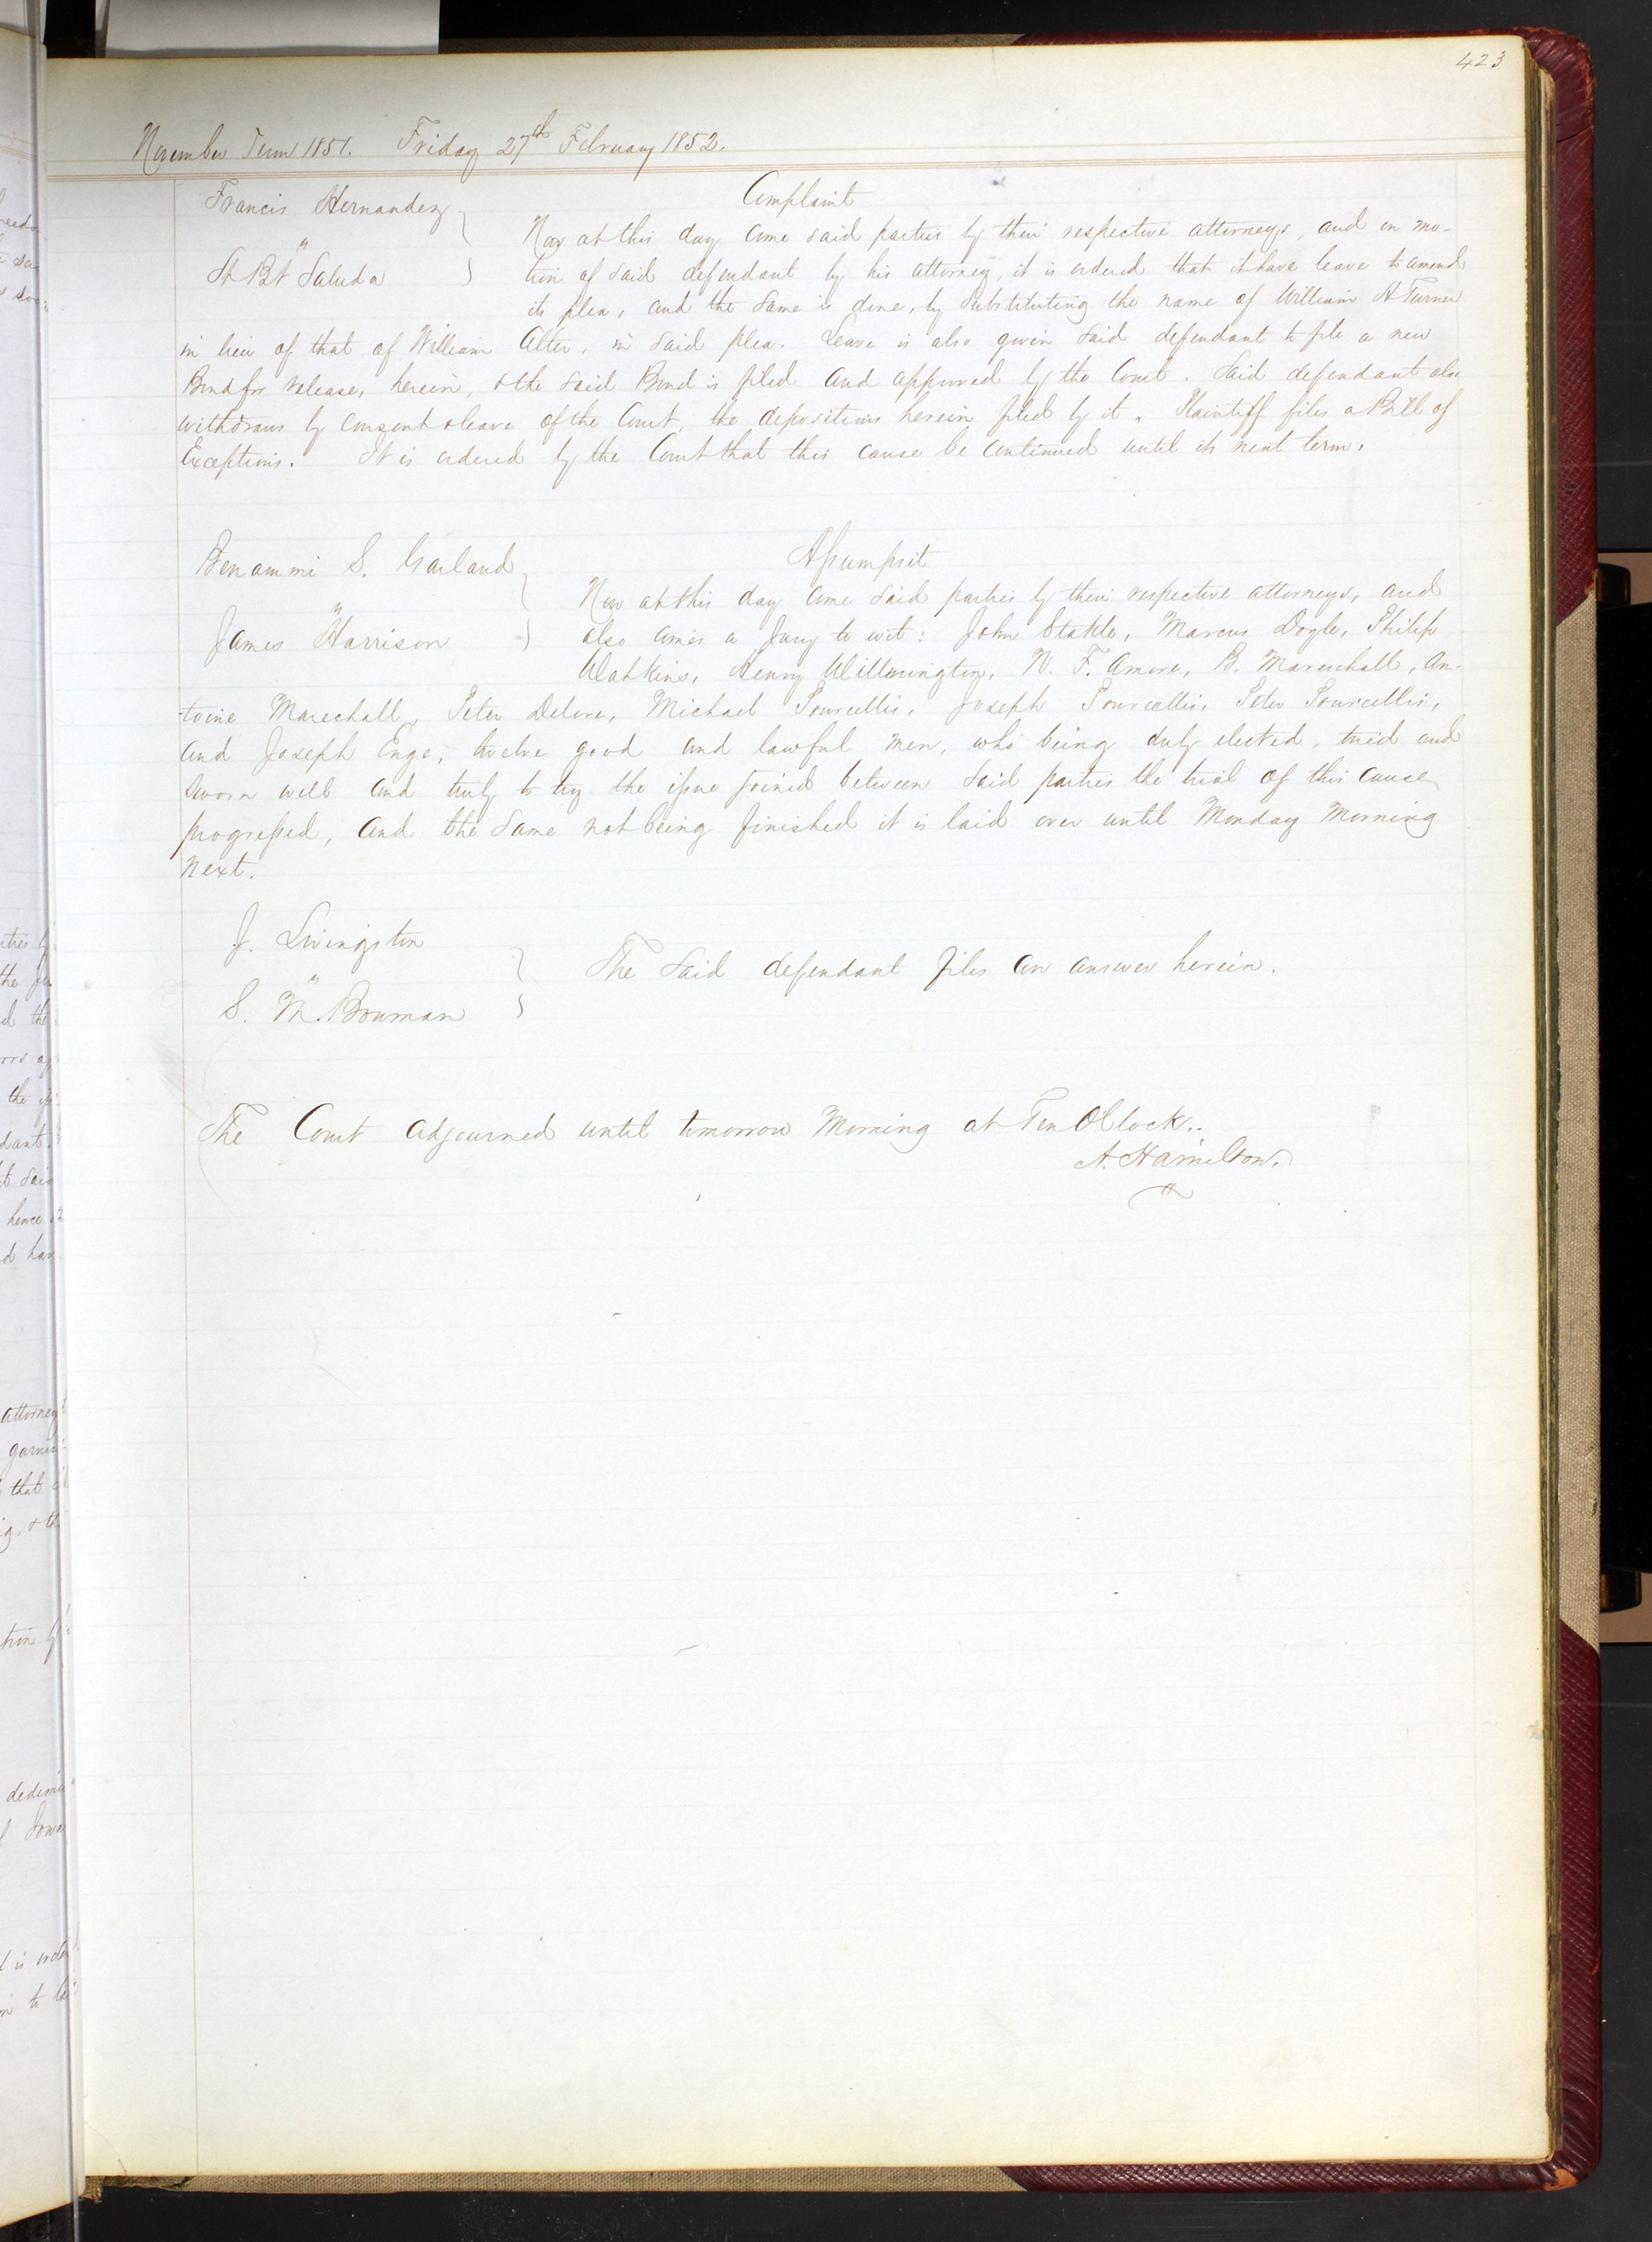 423
November Term 1851. Friday 27th February 1852.
Francis Hernandez
"
St Bt Saluda
Complaint
Now at this day come said parties by their respective attorneys, and on mo-
tion of said defendant by his attorney, it is ordered that it have leave to amend
its plea, and the same is done, by substituting the name of William A Turner
in lieu of that of William Alter, in said plea. Leave is also given said defendant to file a new
Bond for release, herein, & the said Bond is filed and approved by the Court. Said defendant also
withdraws by consent & leave of the Court, the depositions herein filed by it. Plaintiff files a Bill of
Exceptions. It is ordered by the Court that this cause be continued until its next term.
Benammi S. Garland
"
James Harrison
Assumpsit
Now at this day come said parties by their respective attorneys, and
also comes a Jury to wit: John Stahle, Marcus Dogle, Philip
Watkins, Henry W. F. Amore, B. Mareschall, An-
toine Marechall, Peter Delore, Michael Pourcellis, Joseph Pourcellis, Peter Pourcellis,
and Joseph Enge, twelve good and lawful men, who being duly elected, tried and
sworn well and truly to try the issue joined between said parties the trial of this cause
progressed, and the same not being finished it is laid over until Monday Morning
next.
J. Livingston
"
S. M. Bowman
The said defendant files an answer herein.
The Court adjourned until tomorrow Morning at Ten OClock..
A. Hamilton.